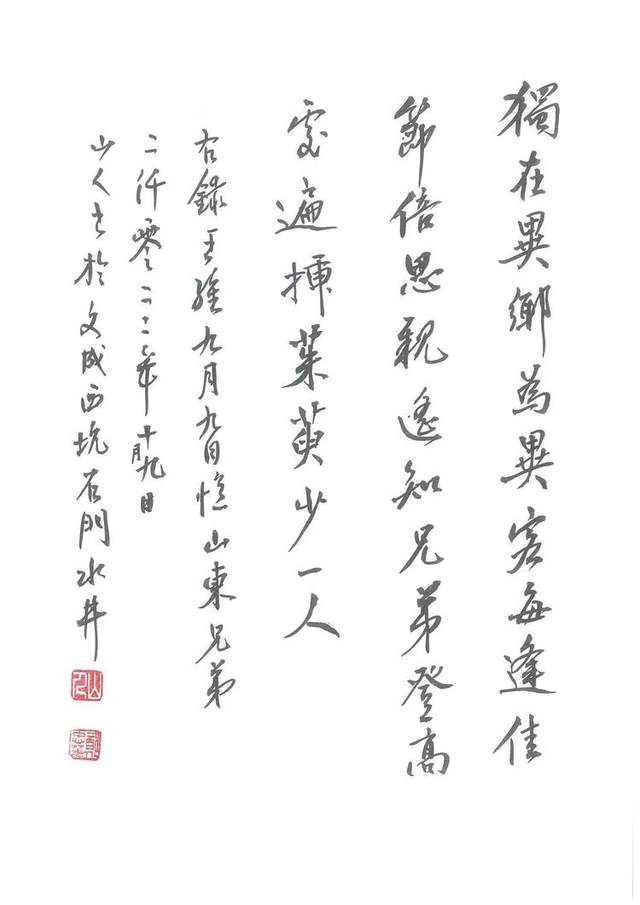 獨在異鄉為異客每逢佳
節倍思親遙知兄弟登高
處遍插茱萸少一人
右錄王維九月九日憶山東兄弟
二仟零二二年十月九日
山人書於文成西坑石門水井
山人